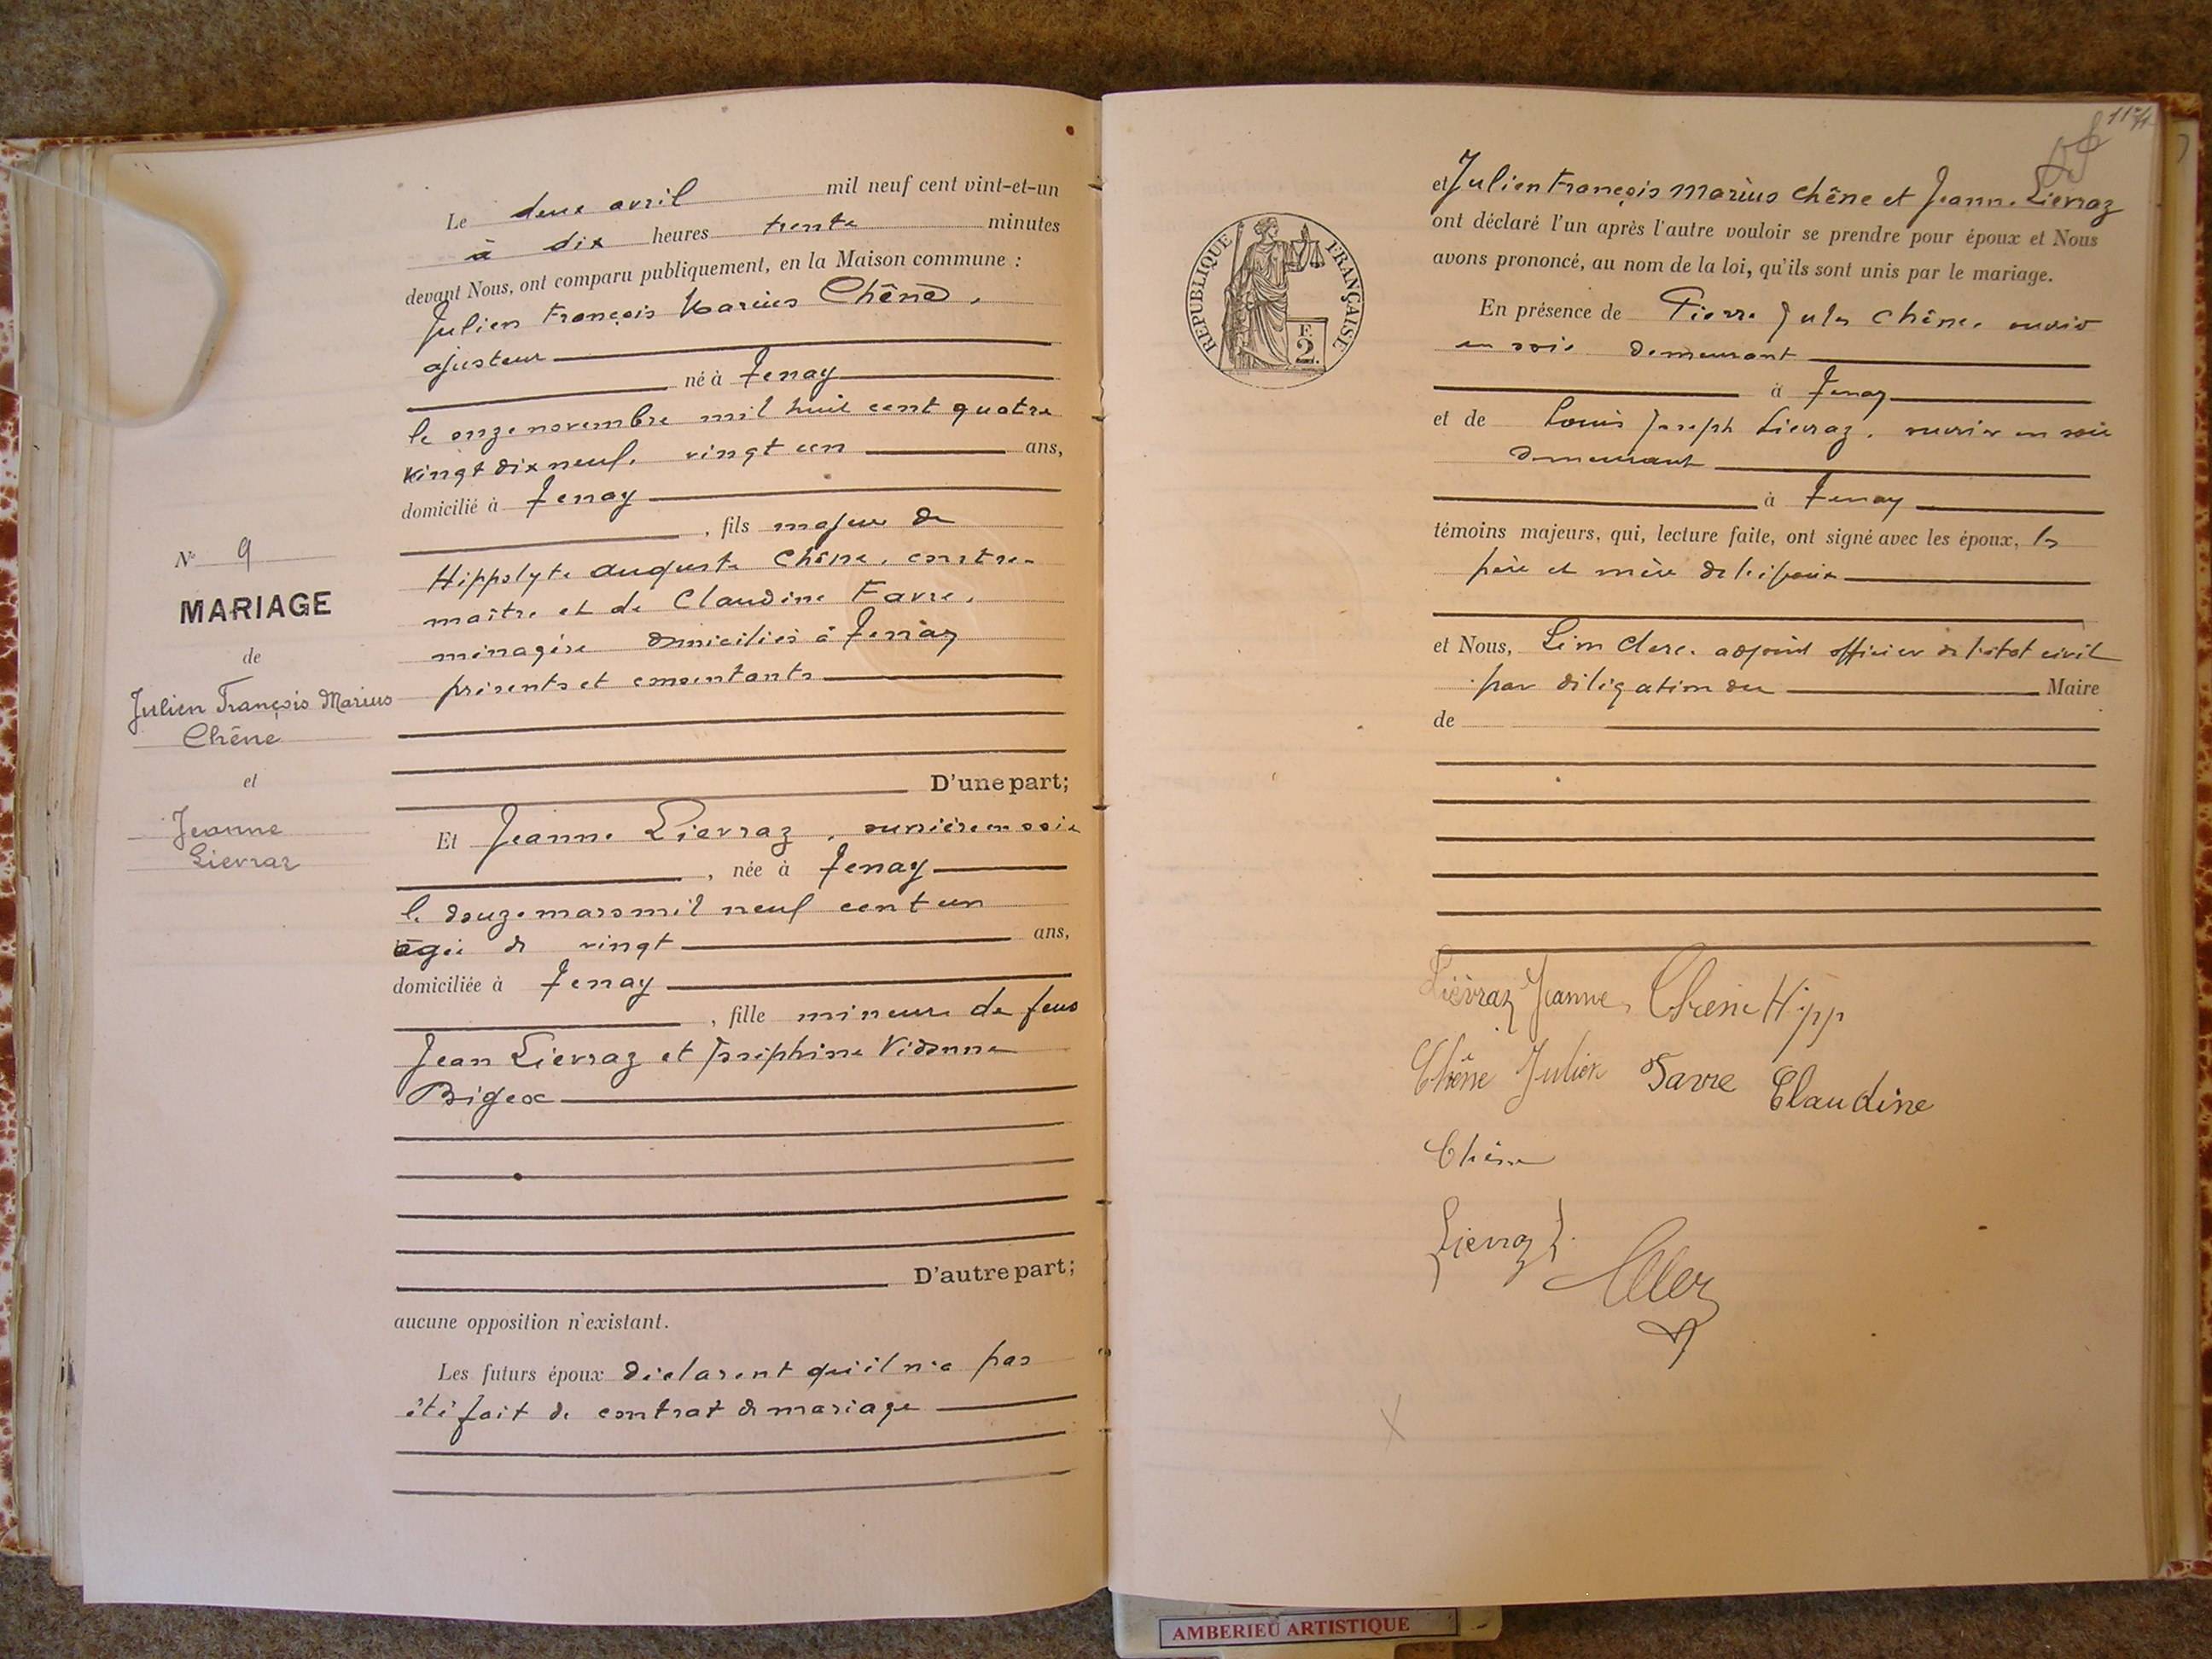 N° 9
MARIAGE
de
Julien François Marius
Chêne
et
Jeanne
Lievraz
Le deux avril mil neuf cent vint-et-un
à dix heures trente minutes
devant Nous, ont comparu publiquement, en la Maison commune :
Julien François Marius Chêne,
ajusteur
né à Tenay
le onze novembre mil huit cent quatre
vingt dix neuf, vingt un ans,
domicilié à Tenay
, fils majeur de
Hippolyte Auguste Chêne, contre-
maître et de Claudine Favre,
ménagère domiciliés à Tenay
présents et consentants
D'une part;
Et Jeanne Lievraz, ouvrière en soie
, née à Tenay
le douze mars mil neuf cent un
âgée de vingt ans,
domiciliée à Tenay
, fille mineure de feus
Jean Lievraz et Joséphine Vidonne
Bigex
D'autre part;
aucune opposition n'existant.
Les futurs époux déclarent qu'il n'a pas
été fait de contrat de mariage
REPUBLIQUE FRANÇAISE
2
et Julien François Marius Chêne et Jeanne Lievraz
ont déclaré l'un après l'autre vouloir se prendre pour époux et Nous
avons prononcé, au nom de la loi, qu'ils sont unis par le mariage.
En présence de Pierre Jules Chêne, ouvrier
en soie demeurant
à Tenay
et de Louis Joseph Lievraz, ouvrier en soie
demeurant
à Tenay
témoins majeurs, qui, lecture faite, ont signé avec les époux, les
père et mère de l'époux
et Nous, adjoint officier de l'état civil
par délégation du Maire
de
Lièvraz Jeanne, Chêne Hipp
Chêne Julien Favre Claudine
Chêne
Lievraz L
AMBERIEU ARTISTIQUE